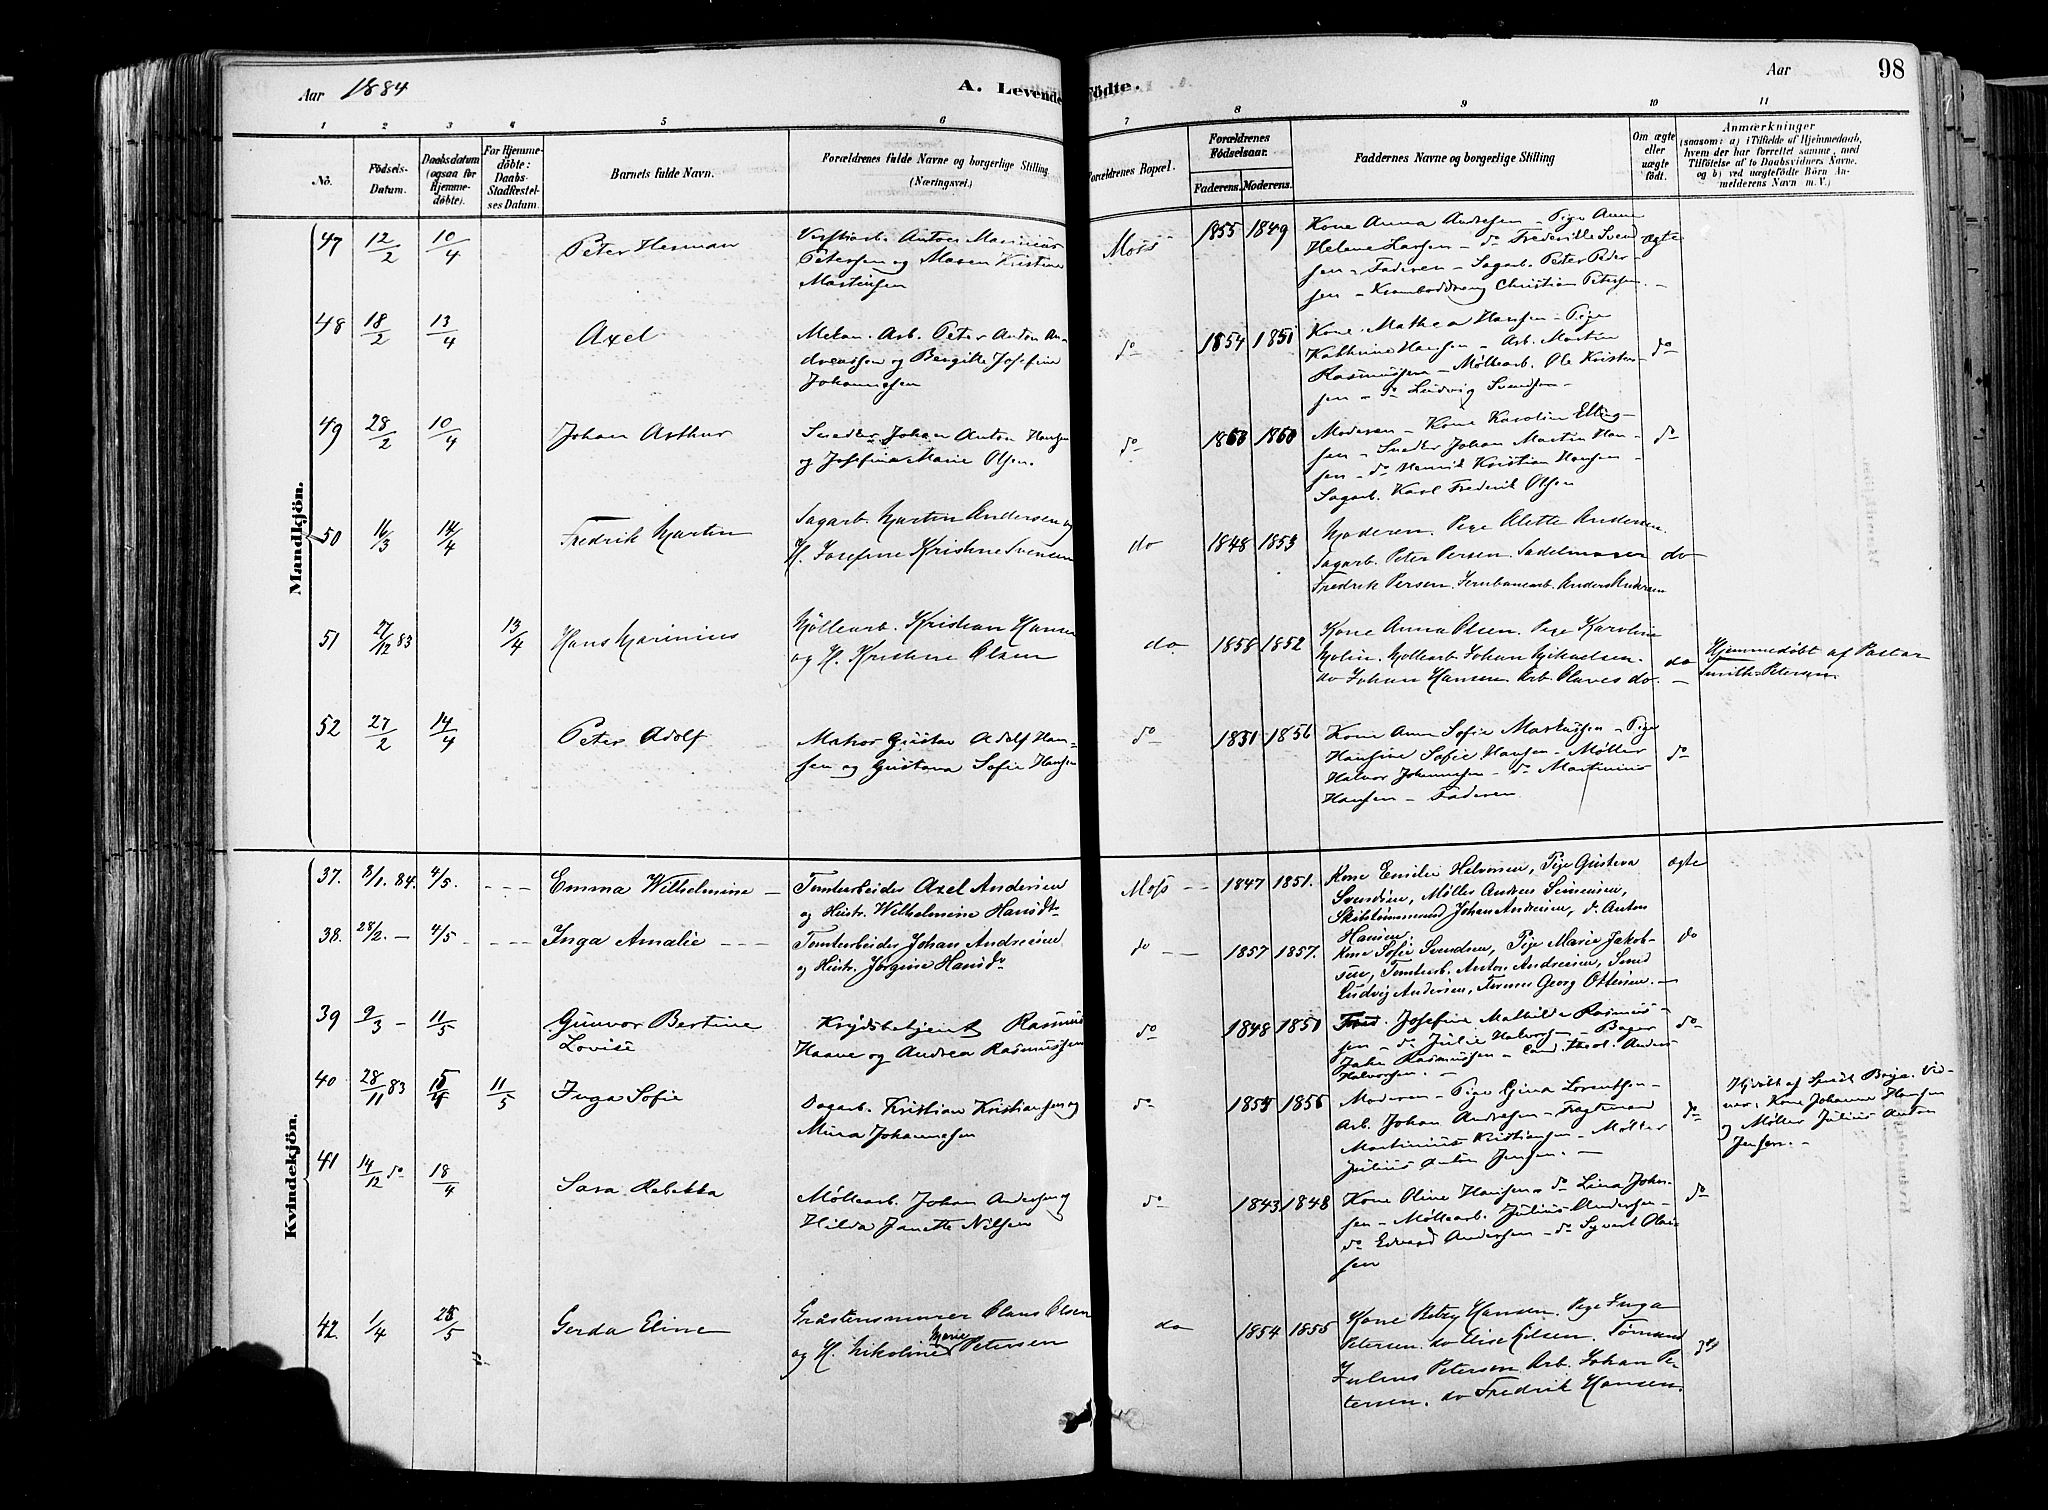 Aar 1884
A. Levende Födte.
Aar
98
1 2 3 4 5 6 7 8 9 10 11
No.
Födsels-Datum.
Daabsdatum (ogsaa for Hjemme-döbte).
For Hjemme-döbte: Daabs-Stadfæstel-ses Datum.
Barnets fulde Navn.
Forældrenes fulde Navne og borgerlige Stilling (Næringsvei.)
Forældrenes Bopæl.
Forældrenes Födselsaar.
Faderens. Moderens.
Faddernes Navne og borgerlige Stilling
Om ægte eller uægte födt.
Anmærkninger
(saasom: a) i Tilfælde af Hjemmedaab,
hvem der har forrettet samme, med
Tilföielse af to Daabsvidners Navne.
og b) ved uægtefödte Börn An-
melderens Navn m. V.)
Mandkjön.
47 12/2 10/4 Peter Herman
Anton Marinius
Petersen og Maren Kristine
Martinsen
Moss 1855 1849
Kone Anna Andresen - Pige Anne
Helene Larsen - do Frederikke Svend
sen - Faderen - Sagarb. Peter Peder-
sen - Krambоddreng Christian Petersen. -
ægte
48 18/2 13/4 Axel
Mekan. Arb. Peter Anton An-
dreassen og Bergitte Josefine
Johannesen
do 1854 1851
Kone Mathea Hansen - Pige
Kathrine Hansen - Arb. Martin
Rasmussen - Møllearb. Ole Kristen-
sen - do Ludvig Svendsen -
do
49 28/2 10/4 Johan Arthur
Snedker Johan Anton Hansen
og Josefine Marie Olsen.
do 1860 1860
Moderen - Kone Karoline Elling-
sen - Snedker Johan Martin Han-
sen - do Henrik Kristian Hansen -
Sagarb. Karl Frederik Olsen
do
50 16/3 14/4 Fredrik Martin
Sagarb. Martin Andersen og
H. Josefine Kristine Svensen
do 1848 1853
Moderen. Pige Alette Andersen.
Sagarb. Peter Persen. Sadelmager
Fredrik Persen. Jernbanearb. Anders Andersen
do
51 27/12 83 13/4 Hans Marinius
Møllearb. Kristian Hansen
og H. Kristine Olsen
do 1858 1852
Kone Anna Olsen. Pige Karoline
Molin. Møllearb. Johan Mikaelsen.
do Johan Hansen. Arb. Olaves do.
do
Hjemmedøbt af Pastor
Smith-Petersen.
52 27/2 14/4 Peter Adolf
Matros Gustav Adolf Han-
sen og Gustava Sofie Hansen
do 1851 1856
Kone Anne Sofie Markussen - Pige
Hansine Sofie Hansen - Møller
Halvor Johannesen - do Martinius
Hansen - Faderen
do
Kvindekjön.
37. 8/1. 84. 4/5. - - - Emma Wilhelmine -
Tomtearbeider Axel Andersen
og Hustr. Wilhelmine Hansdtr
Moss - - 1847 1851.
Kone Emilie Halvorsen, Pige Gustava
Svendsen, Møller Andreas Simensen,
Skibstømmermand Johan Andersen, do Anton
Hansen.
ægte
38. 28/2. - 4/5 - - - Inga Amalie - - -
Tomtearbeider Johan Andresen
og Hustr. Jørgine Hansdr
do - - 1857 1857.
Kone Sofie Svendsen, Pige Marie Jakob-
sen, Tomtearb. Anton Andresen, Smed
Ludvig Andersen, Former Georg Ottersen. -
do
39 9/3 - 11/5 Gunvor Bertine
Lovise
Krydsbetjent Rasmus
Haave og Andrea Rasmussen
do 1848 1850
Josefine Mathilde Rasmus
sen - do Julie Halvorsen - Bager
Jahn Rasmussen - Cand. theol. Anders
Halvorsen. -
do
40 28/11 83 11/5 Inga Sofie
Dagarb. Kristian Kristiansen og
Mina Johannesen
do 1854 1856
Moderen - Pige Gina Lorentsen -
Arb. Johan Andresen - Fragtmand
Martinius Kristiansen - Møller
Julius Anton Jensen. -
do
Hjdøbt af Bryn. Vid-
ner, Kone Johanne Hansen
og Møller Julius Anton
Jensen. -
41 14/12 do 18/4 Sara Rebekka
Møllearb. Johan Andersen og
Hilda Janette Nilsen
do 1843 1848
Kone Oline Hansen, do Lina Johan-
sen - Møllearb. Julius Andersen -
do Edvard Andersen - do Syvert Olai
sen
do
42. 1/4 25/5 Gerda Eline
Gråstensmurer Claus Olsen
og H. Nikoline Marie Petersen
do 1854 1855
Kone Betzy Hansen. Pige Inga
Petersen. do Elise Eilsen. Tømmermand
Julius Petersen Arb. Johan Pe-
tersen. do Fredrik Hansen.